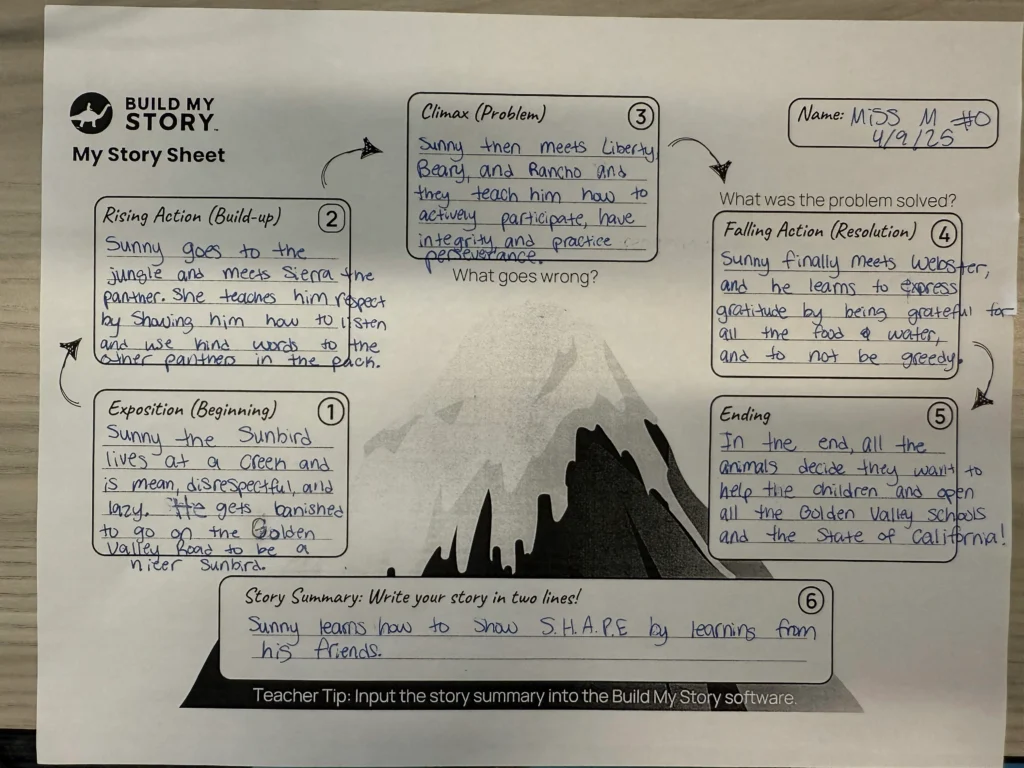 BUILD MY
STORY
My Story Sheet
Name: Miss M #0
4/9/25
Exposition (Beginning) 1
Sunny the Sunbird
lives at a creek and
is mean, disrespectful, and
lazy. He gets banished
to go on the Golden
Valley Road to be a
nicer Sunbird.
Rising Action (Build-up) 2
Sunny goes to the
jungle and meets Sierra the
panther. She teaches him respect
by showing him how to listen
and use kind words to the
other panthers in the pack.
Climax (Problem) 3
Sunny then meets Liberty,
Beary, and Rancho and
they teach him how to
actively participate, have
integrity and practice
perseverance.
What goes wrong?
What was the problem solved?
Falling Action (Resolution) 4
Sunny finally meets Webster,
and he learns to express
gratitude by being grateful for
all the food & water,
and to not be greedy.
Ending 5
In the end, all the
animals decide they want to
help the children and open
all the Golden Valley schools
and the State of California!
Story Summary: Write your story in two lines! 6
Sunny learns how to show S.H.A.P.E by learning from
his friends.
Teacher Tip: Input the story summary into the Build My Story software.